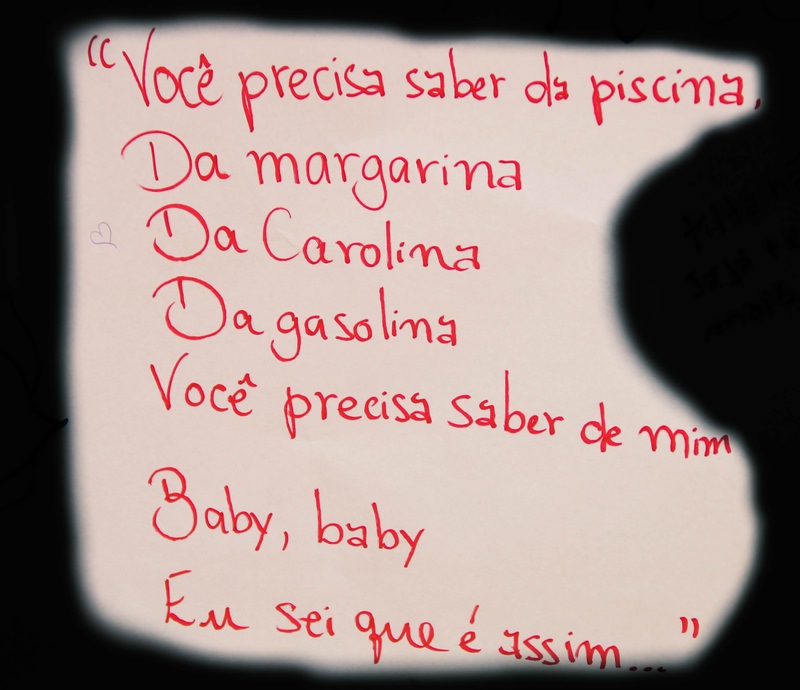 “Você precisa saber da piscina,
Da margarina
Da Carolina
Da gasolina
Você precisa saber de mim
Baby, baby
Eu sei que é assim...”